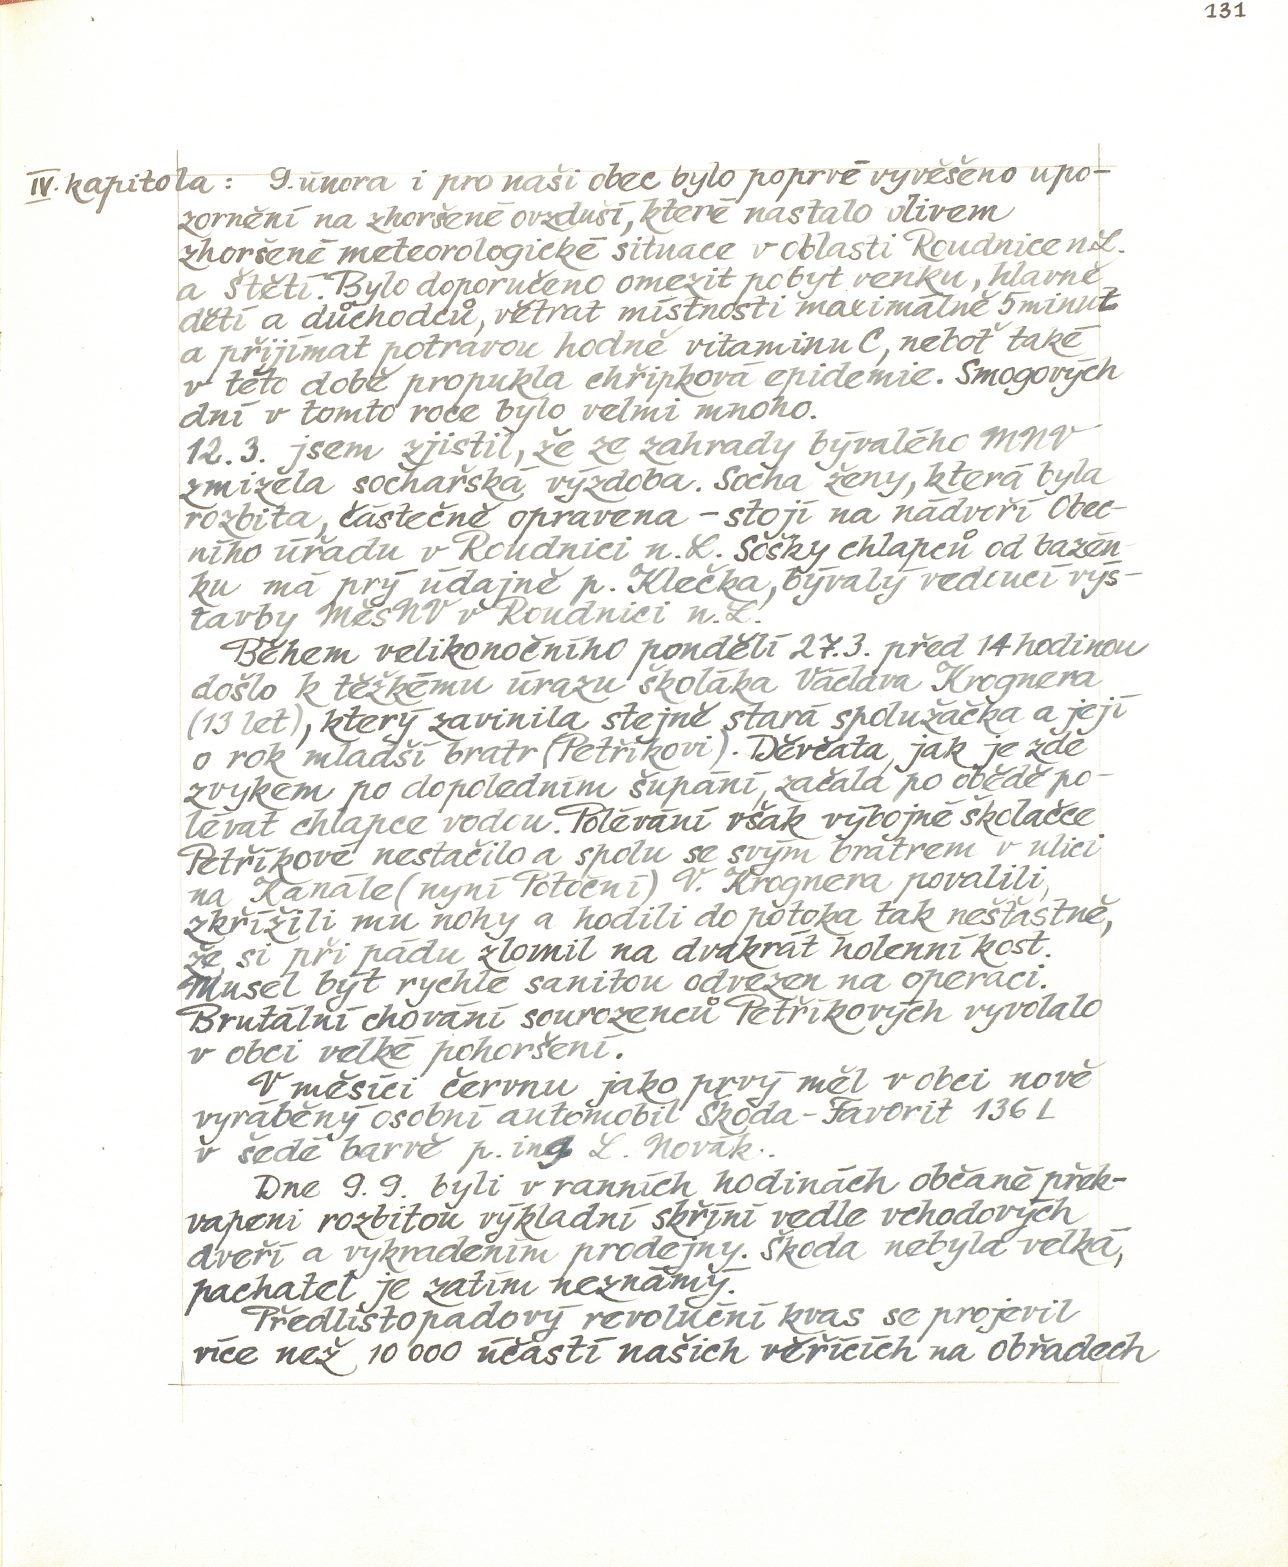 131
IV. kapitola: 9. února i pro naši obec bylo poprvé vyvěšeno upo-
zornění na zhoršené ovzduší, které nastalo vlivem
zhoršené meteorologické situace v oblasti Roudnice n.L.
a Štětí. Bylo doporučeno omezit pobyt venku, hlavně
dětí a důchodců, větrat místnosti maximálně 5 minut
a přijímat potravou hodně vitaminu C, neboť také
v této době propukla chřipková epidemie. Smogových
dní v tomto roce bylo velmi mnoho.
12.3. jsem zjistil, že ze zahrady bývalého MNV
zmizela sochařská výzdoba. Socha ženy, která byla
rozbita, částečně opravena - stojí na nádvoří Obec-
ního úřadu v Roudnici n.L. Sošky chlapců od bazén-
ku má prý údajně p. Klečka, bývalý vedoucí výs-
tavby MěsNV v Roudnici n.L.
Během velikonočního pondělí 27.3. před 14 hodinou
došlo k těžkému úrazu školáka Václava Krognera
(13 let), který zavinila stejně stará spolužačka a její
o rok mladší bratr (Petříkovi). Děvčata, jak je zde
zvykem po dopoledním šupání, začala po obědě po-
lévat chlapce vodou. Polévání však výbojné školačce
Petříkové nestačilo a spolu se svým bratrem v ulici
na Kanále (nyní Potoční) V. Krognera povalili,
zkřížili mu nohy a hodili do potoka tak nešťastně,
že si při pádu zlomil na dvakrát holenní kost.
Musel být rychle sanitou odvezen na operaci.
Brutální chování sourozenců Petříkových vyvolalo
v obci velké pohoršení.
V měsíci červnu jako prvý měl v obci nově
vyráběný osobní automobil Škoda - Favorit 136 L
v šedé barvě p. ing L. Novák.
Dne 9.9. byli v ranních hodinách občané přek-
vapeni rozbitou výkladní skříní vedle vchodových
dveří a vykradením prodejny. Škoda nebyla velká,
pachatel je zatím neznámý.
Předlistopadový revoluční kvas se projevil
více než 10 000 účastí našich věřících na obřadech